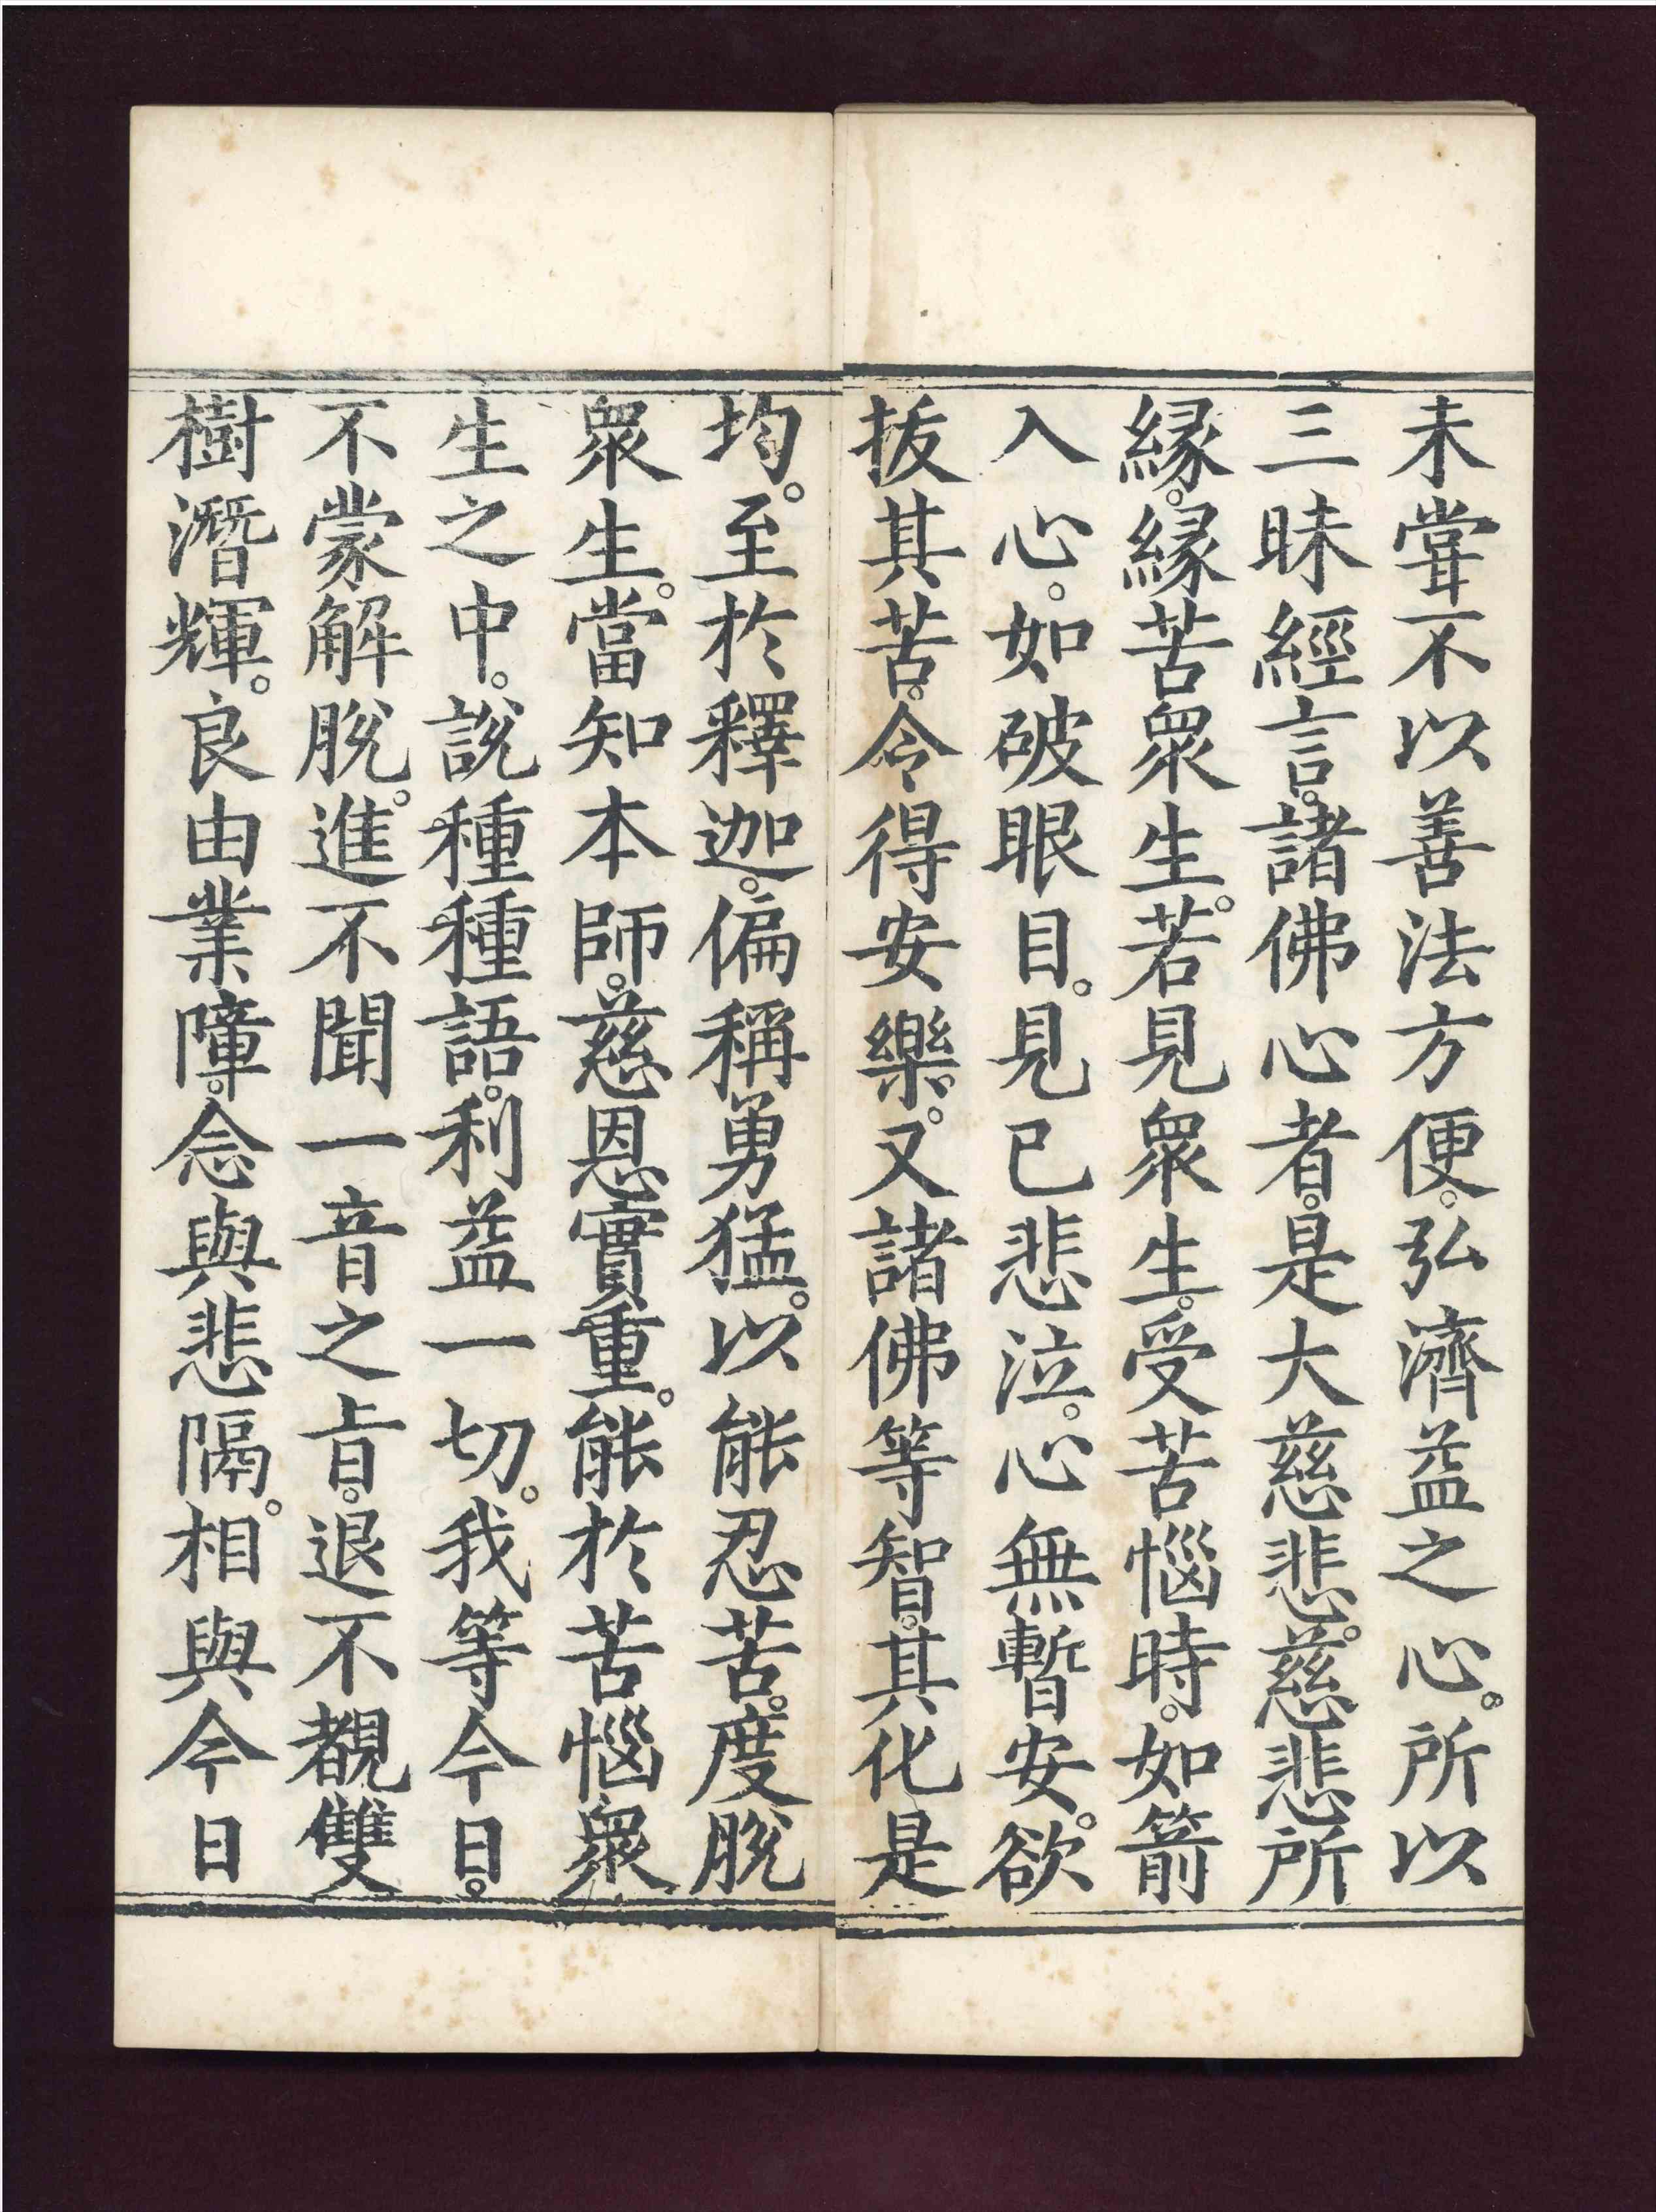 未甞不以善法方便。弘濟益之心。所以
三昧經言。諸佛心者。是大慈悲。慈悲所
縁。縁苦衆生。若見衆生。受苦惱時。如箭
入心。如破眼目。見已悲泣。心無暫安。欲
拔其苦。令得安樂。又諸佛等智。其化是
均。至於釋迦。偏稱勇猛。以能忍苦。度脫
衆生。當知本師。慈恩實重。能於苦惱衆
生之中。說種種語。利益一切。我等今日。
不蒙解脫。進不聞一音之旨。退不覩雙
樹潛輝。良由業障。念與悲隔。相與今日